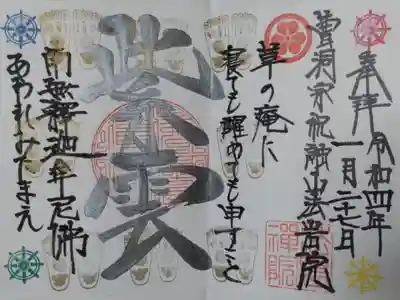 奉拝
令和四年
一月二十七日
曹洞宗祝融山法岩院
草の庵に
寝ても醒めても申すこと
紫雲
南無釋迦牟尼佛
あわれみたまえ